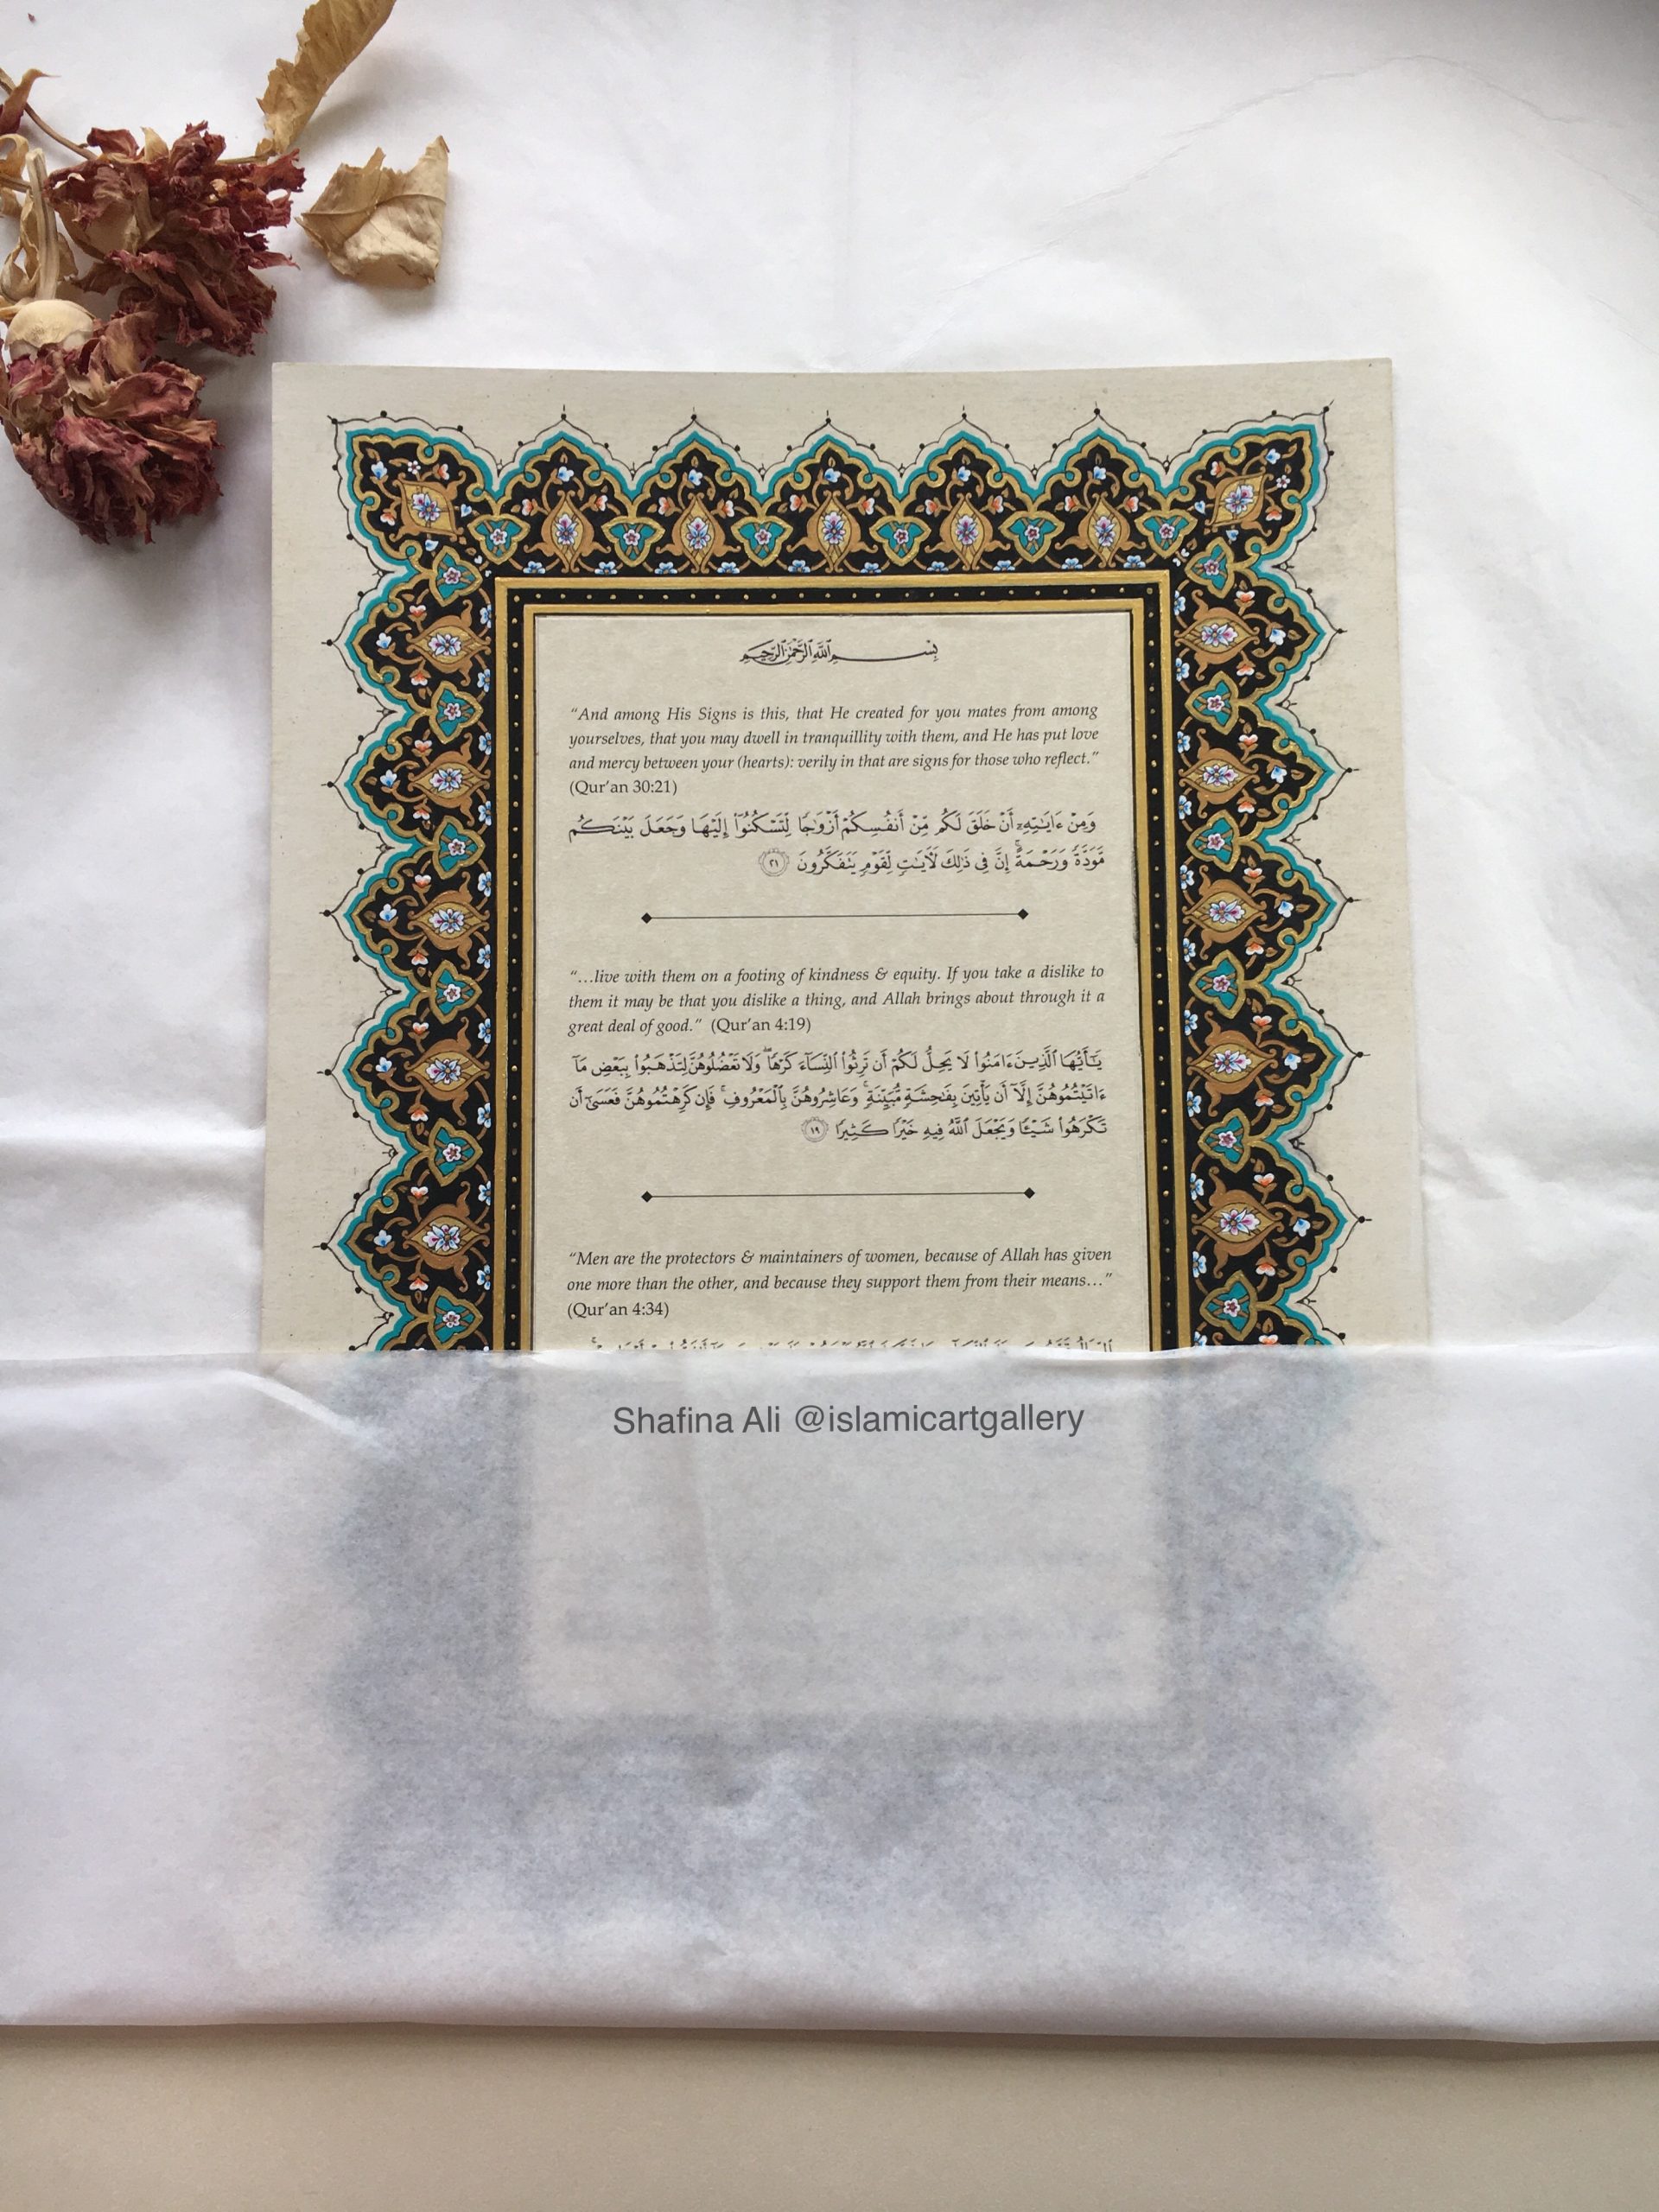 بِسْمِ ٱللَّهِ ٱلرَّحْمَٰنِ ٱلرَّحِيمِ
“And among His Signs is this, that He created for you mates from among
yourselves, that you may dwell in tranquillity with them, and He has put love
and mercy between your (hearts): verily in that are signs for those who reflect.”
(Qur’an 30:21)
وَمِنْ ءَايَٰتِهِۦٓ أَنْ خَلَقَ لَكُم مِّنْ أَنفُسِكُمْ أَزْوَٰجًا لِّتَسْكُنُوٓا۟ إِلَيْهَا وَجَعَلَ بَيْنَكُم
مَّوَدَّةً وَرَحْمَةً ۚ إِنَّ فِى ذَٰلِكَ لَءَايَٰتٍ لِّقَوْمٍ يَتَفَكَّرُونَ ٢١
“…live with them on a footing of kindness & equity. If you take a dislike to
them it may be that you dislike a thing, and Allah brings about through it a
great deal of good.” (Qur’an 4:19)
يَٰٓأَيُّهَا ٱلَّذِينَ ءَامَنُوا۟ لَا يَحِلُّ لَكُمْ أَن تَرِثُوا۟ ٱلنِّسَآءَ كَرْهًا ۖ وَلَا تَعْضُلُوهُنَّ لِتَذْهَبُوا۟ بِبَعْضِ مَآ
ءَاتَيْتُمُوهُنَّ إِلَّآ أَن يَأْتِينَ بِفَٰحِشَةٍ مُّبَيِّنَةٍ ۚ وَعَاشِرُوهُنَّ بِٱلْمَعْرُوفِ ۚ فَإِن كَرِهْتُمُوهُنَّ فَعَسَىٰٓ أَن
تَكْرَهُوا۟ شَيْـًٔا وَيَجْعَلَ ٱللَّهُ فِيهِ خَيْرًا كَثِيرًا ١٩
“Men are the protectors & maintainers of women, because of Allah has given
one more than the other, and because they support them from their means…”
(Qur’an 4:34)
Shafina Ali @islamicartgallery